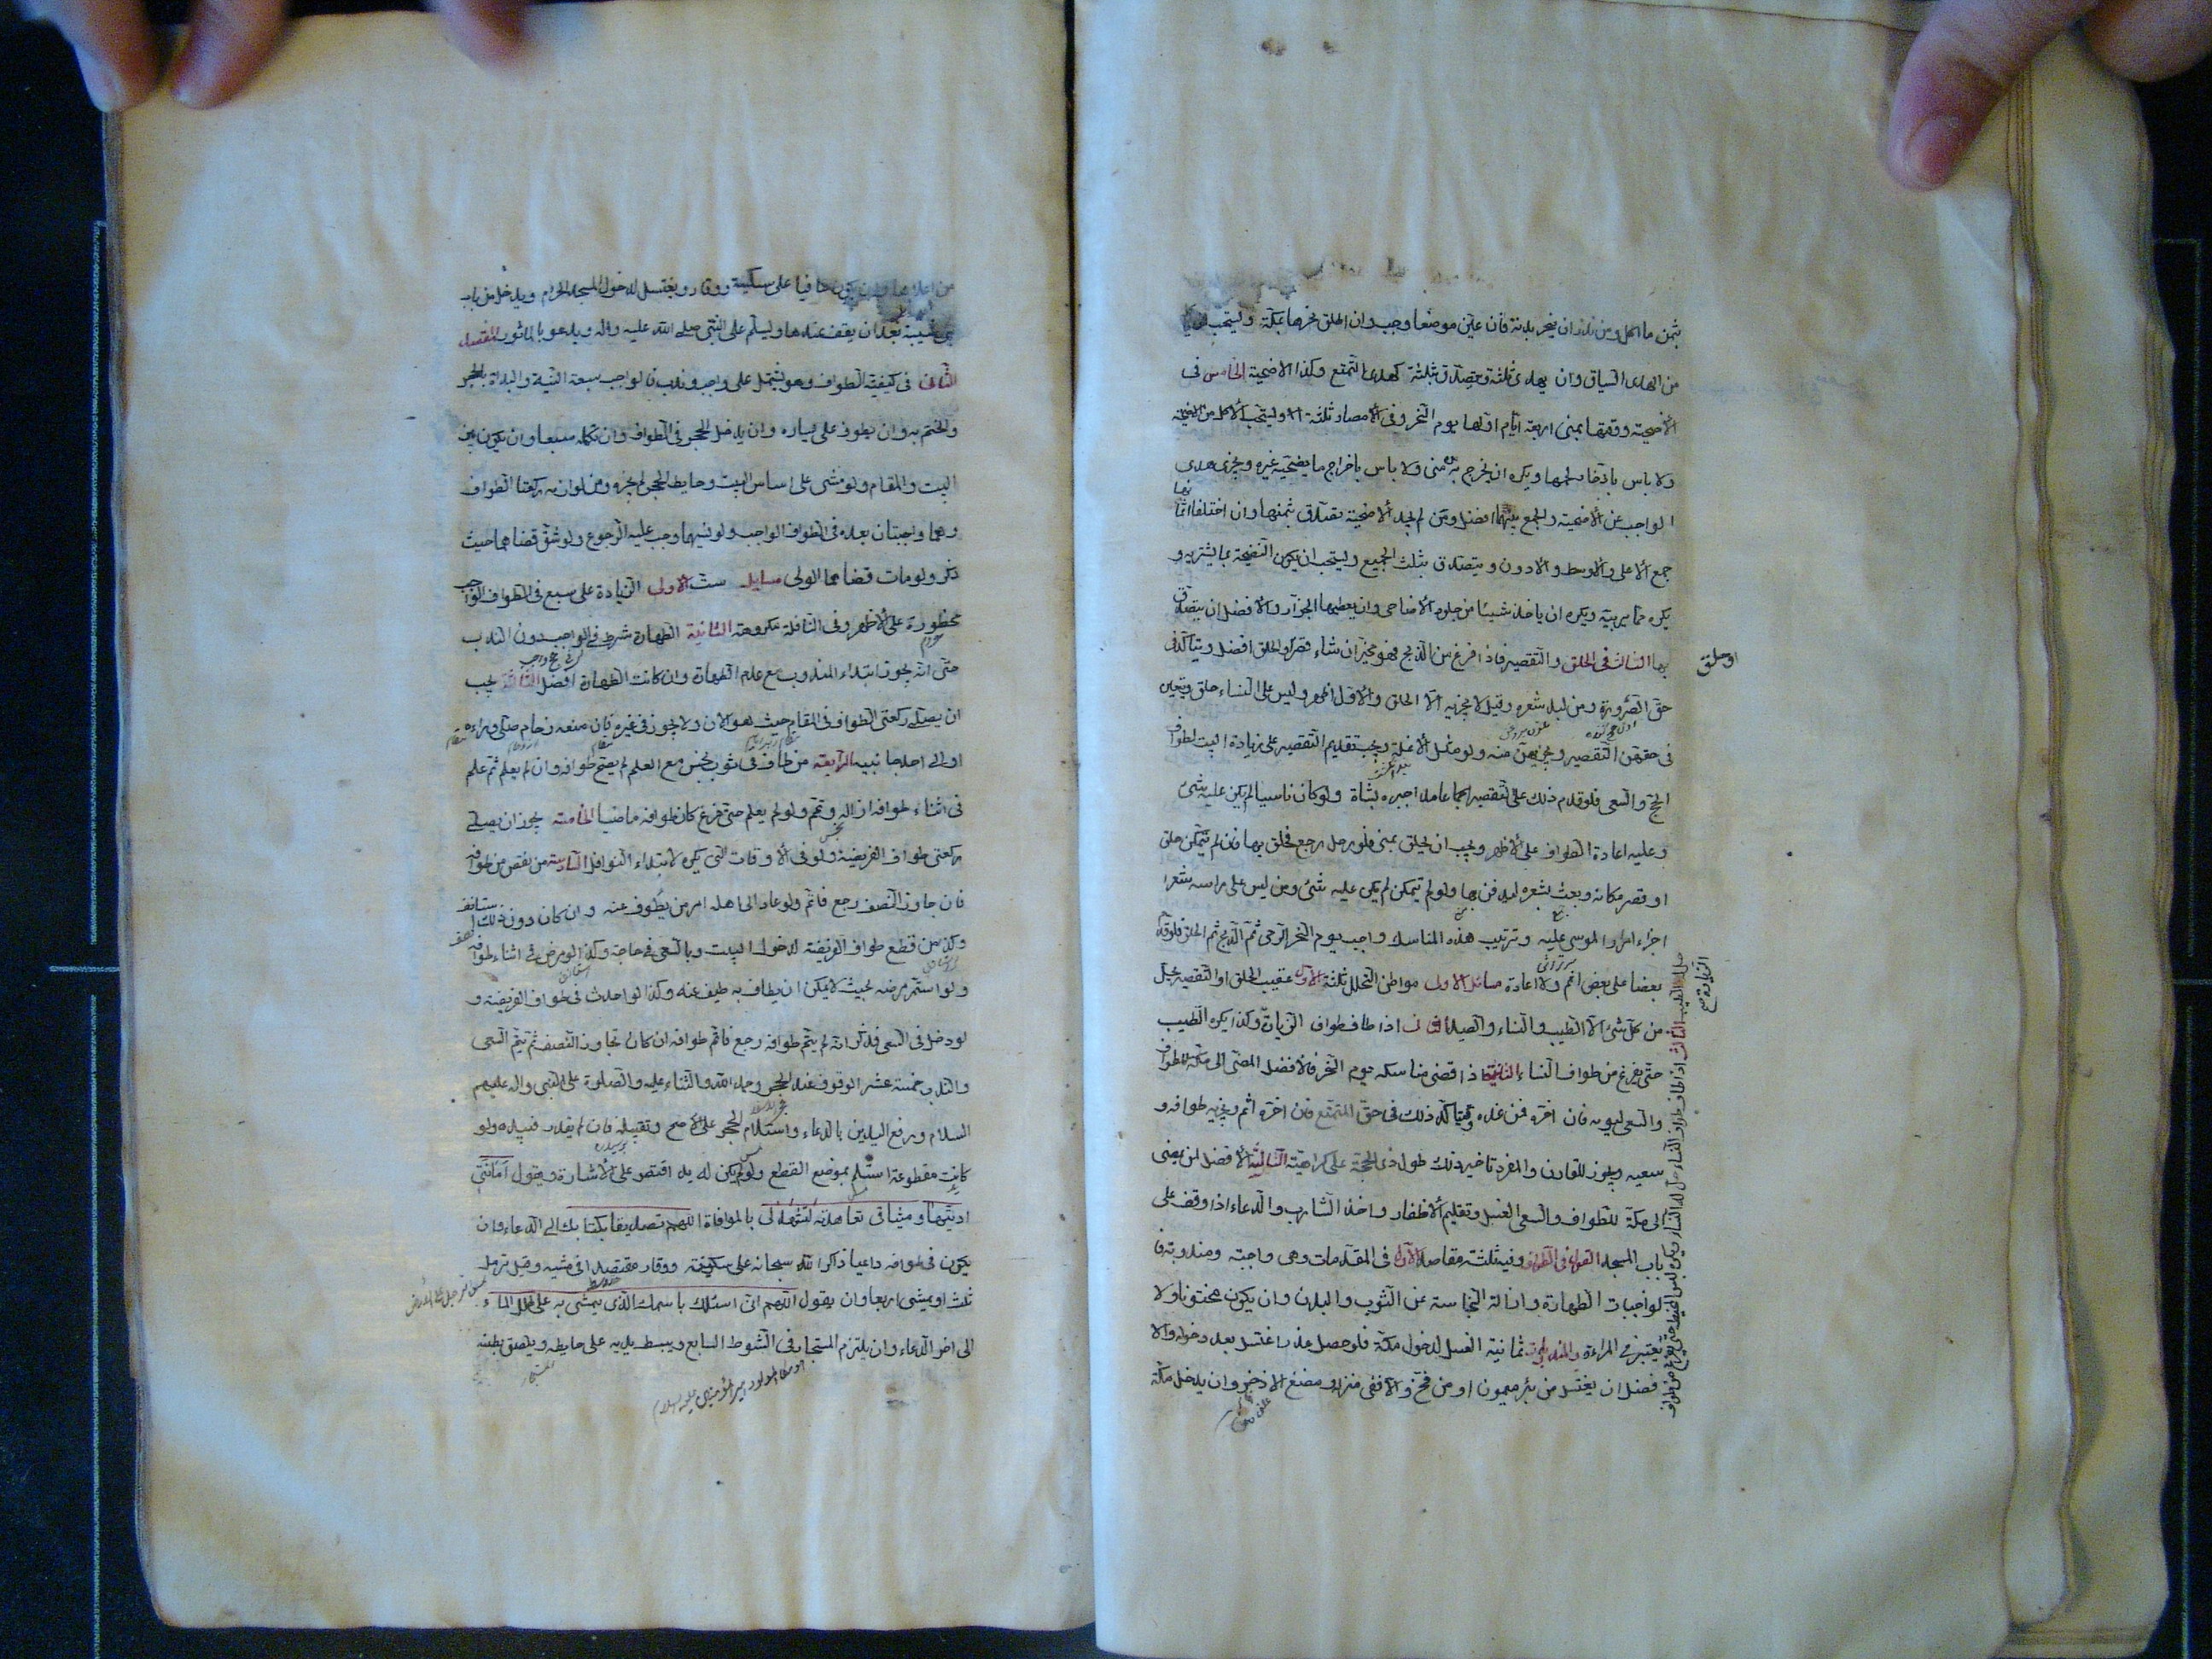 بثمن ما اكل ومن نذر ان ينحر بدنة فان عين موضعا وجب وان اطلق نحرها بمكة ويستحب
من الهدى السياق وان يهدى ثلثه ويتصدق بثلثه كهدى التمتع وكذا الاضحية الخامس فى
الاضحية ووقتها بمنى اربعة ايام اولها يوم النحر وفى الامصار ثلثة ويستحب الاكل من الاضحية
ولا باس بادخار لحمها ويكره ان يخرج به من منى ولا باس باخراج ما يضحيه غيره ويجزى هدى
الواجب عن الاضحية والجمع بينهما افضل ومن لم يجد الاضحية تصدق بثمنها وان اختلف اثمانها
جمع الاعلى والاوسط والادون ويتصدق بثلث الجميع ويستحب ان يكون التضحية بما يشتريه و
يكره بما يربيه ويكره ان ياخذ شيئا من جلود الاضاحى وان يعطيها الجزار والافضل ان يتصدق
بها الثالث فى الحلق والتقصير فاذا فرغ من الذبح فهو مخير ان شاء قصر والحلق افضل ويتاكد فى
او حلق
حق الصرورة ومن لبد شعره وقيل لا يجزيه الا الحلق والاول اظهر وليس على النساء حلق ويتعين
فى حقهن التقصير ويجزيهن منه ولو مثل الانملة ويجب تقديم التقصير على زيارة البيت لطواف
الحج والسعى فلو قدم ذلك على التقصير عامدا جبره بشاة ولو كان ناسيا لم يكن عليه شئ
وعليه اعادة الطواف على الاظهر ويجب ان يحلق بمنى فلو رحل رجع فحلق بها فان لم يتمكن حلق
او قصر مكانه وبعث بشعره ليدفن بها ولو لم يتمكن لم يكن عليه شئ ومن ليس على راسه شعر
اجزاه امرار الموسى عليه وترتيب هذه المناسك واجب يوم النحر الرمى ثم الذبح ثم الحلق فلو قدم
بعضا على بعض اثم ولا اعادة مسائل الاولى مواطن التحلل ثلثة الاول عقيب الحلق او التقصير يحل
من كل شئ الا الطيب والنساء والصيد الثانى اذا طاف طواف الزيارة وكذا يكره الطيب
حتى يفرغ من طواف النساء الثانية اذا قضى مناسكه يوم النحر فالافضل المضى الى مكة للطواف
والسعى ليومه فان اخره فمن غده ويتاكد ذلك فى حق المتمتع فان اخره اثم ويجزيه طوافه و
سعيه ويجوز للقارن والمفرد تاخير ذلك طول ذى الحجة على كراهية الثالثة الافضل لمن يمضى
الى مكة للطواف والسعى الغسل وتقليم الاظفار واخذ الشارب والدعاء اذا وقف على
باب المسجد القول فى الطواف وفيه ثلثة مقاصد الاول فى المقدمات وهى واجبة ومندوبة فا
لواجبات الطهارة وازالة النجاسة عن الثوب والبدن وان يكون مختونا ولا
يعتبر فى المراءة والمندوبات ثمانية الغسل لدخول مكة فلو حصل عذر اغتسل بعد دخوله والا
فضل ان يغتسل من بئر ميمون او من فخ والا ففى منزله ومضغ الاذخر وان يدخل مكة
من اعلاها وان يكون حافيا على سكينة ووقار ويغتسل لدخول المسجد الحرام ويدخل من باب
بنى شيبة بعد ان يقف عندها ويسلم على النبى صلى الله عليه واله ويدعو بالماثور المقصد
الثانى فى كيفية الطواف وهو يشتمل على واجب وندب فالواجب سبعة النية والبداة بالحجر
والختم به وان يطوف على يساره وان يدخل الحجر فى الطواف وان يكمله سبعا وان يكون بين
البيت والمقام ولو مشى على اساس البيت وحايط الحجر لم يجزه ومن لوازمه ركعتا الطواف
وهما واجبتان بعده فى الطواف الواجب ولو نسيهما وجب عليه الرجوع ولو شق قضاهما حيث
ذكر ولو مات قضاهما الولى مسايل ست الاولى الزيادة على سبع فى الطواف الواجب
محظورة على الاظهر وفى النافلة مكروهة الثانية الطهارة شرط فى الواجب دون الندب
حتى انه يجوز ابتداء المندوب مع عدم الطهارة وان كانت الطهارة افضل الثالثة يجب
ان يصلى ركعتى الطواف فى المقام حيث هو الان ولا يجوز فى غيره فان منعه زحام صلى وراءه
او الى احد جانبيه الرابعة من طاف فى ثوب نجس مع العلم لم يصح طوافه وان لم يعلم ثم علم
فى اثناء طوافه ازاله وتمم ولو لم يعلم حتى فرغ كان طوافه ماضيا الخامسة يجوز ان يصلى
ركعتى طواف الفريضة ولو فى الاوقات التى يكره لابتداء النوافل السادسة من نقص من طوافه
فان جاوز النصف رجع فاتم ولو عاد الى اهله امر من يطوف عنه وان كان دون ذلك استانف
وكذا من قطع طواف الفريضة لدخول البيت وبالسعى فى حاجة وكذا لو مرض فى اثناء طوافه
ولو استمر مرضه بحيث لا يمكن ان يطاف به طيف عنه وكذا لو احدث فى طواف الفريضة و
لو دخل فى السعى فذكر انه لم يتم طوافه رجع فاتم طوافه ان كان تجاوز النصف ثم تمم السعى
والندب خمسة عشر الوقوف عند الحجر وحمد الله والثناء عليه والصلوة على النبى واله عليهم
السلام ورفع اليدين بالدعاء واستلام الحجر على الاصح وتقبيله فان لم يقدر فبيده ولو
كانت مقطوعة استلم بموضع القطع ولو لم يكن له يد اقتصر على الاشارة ويقول امانتى
اديتها وميثاقى تعاهدته لتشهد لى بالموافاة اللهم تصديقا بكتابك الى الدعاء وان
يكون فى طوافه داعيا ذاكرا لله سبحانه على سكينة ووقار مقتصدا فى مشيه وقيل يرمل
ثلثا ويمشى اربعا وان يقول اللهم انى اسئلك باسمك الذى يمشى به على طلل الماء
الى اخر الدعاء وان يلتزم المستجار فى الشوط السابع ويبسط يديه على حايطه ويلصق بطنه